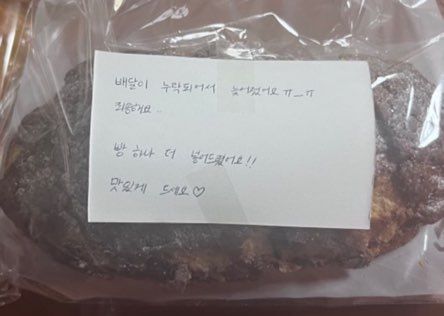 배달이 누락되어서 늦어졌어요 ㅠ_ㅠ
죄송해요..
빵 하나 더 넣어드렸어요!!
맛있게 드세요♡